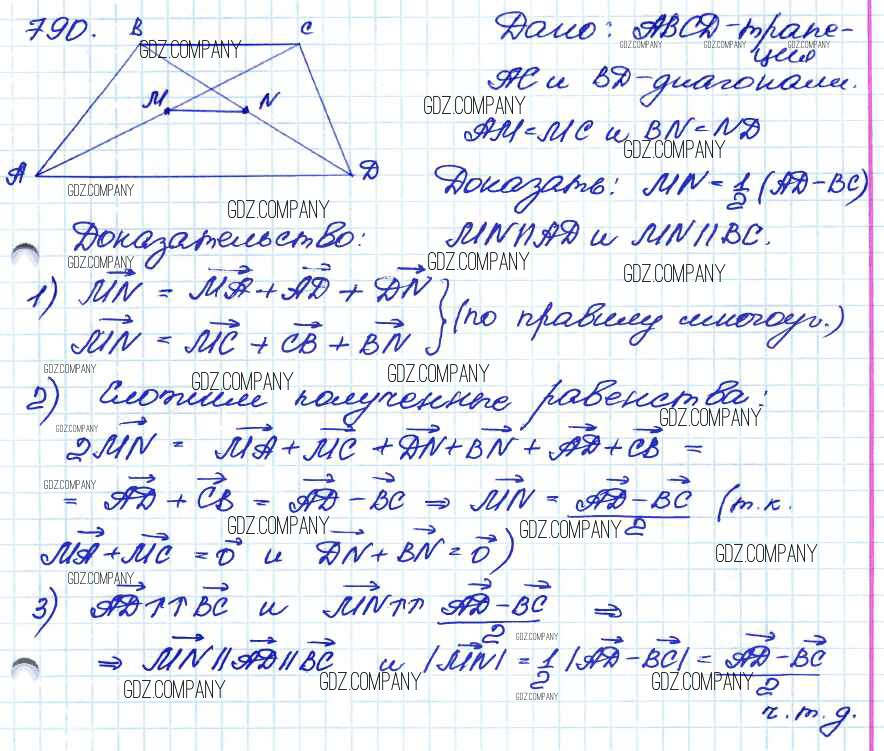 790.
B C
M N
A D
Дано: ABCD – трапе-
ция
AC и BD – диагонали.
AM = MC и BN = ND
Доказать: MN = 1/2 (AD – BC)
MN || AD и MN || BC.
Доказательство:
1) MN→ = MA→ + AD→ + DN→
MN→ = MC→ + CB→ + BN→ } (по правилу многоуг.)
2) Сложим полученные равенства:
2MN→ = MA→ + MC→ + DN→ + BN→ + AD→ + CB→ =
= AD→ + CB→ = AD→ – BC→ ⇒ MN→ = (AD→ – BC→)/2 (т.к.
MA→ + MC→ = 0→ и DN→ + BN→ = 0→)
3) AD→ ↑↑ BC→ и MN→ ↑↑ (AD→ – BC→)/2 ⇒
⇒ MN→ || AD→ || BC→ и |MN→| = 1/2 |AD→ – BC→| = (AD→ – BC→)/2
ч.т.д.
GDZ.COMPANY